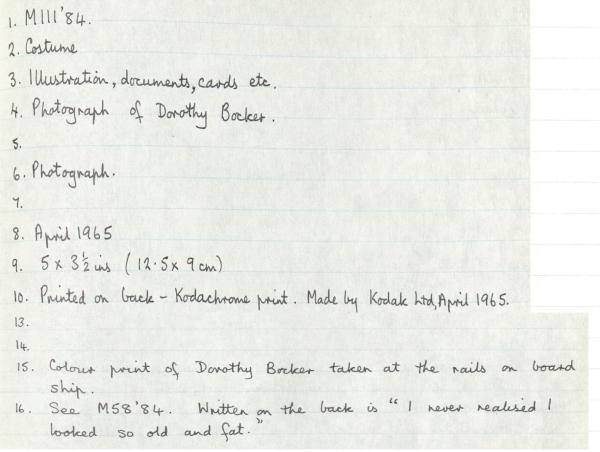 1. M111'84.
2. Costume
3. Illustration, documents, cards etc.
4. Photograph of Dorothy Bocker.
5.
6. Photograph.
7.
8. April 1965
9. 5 x 3½ ins (12.5 x 9 cm)
10. Printed on back - Kodachrome print. Made by Kodak Ltd, April 1965.
13.
14.
15. Colour print of Dorothy Bocker taken at the rails on board
ship.
16. See M58'84. Written on the back is "I never realised I
looked so old and fat."